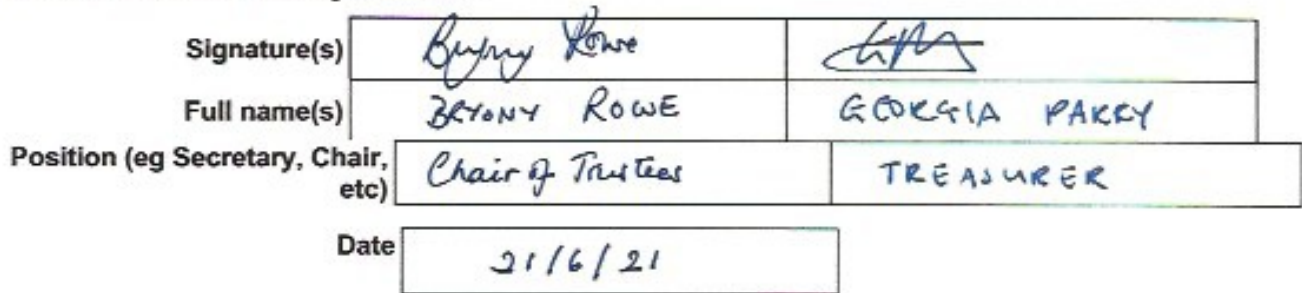 Signature(s) Bryony Rowe
Full name(s) BRYONY ROWE GEORGIA PARRY
Position (eg Secretary, Chair, etc) Chair of Trustees TREASURER
Date 21/6/21